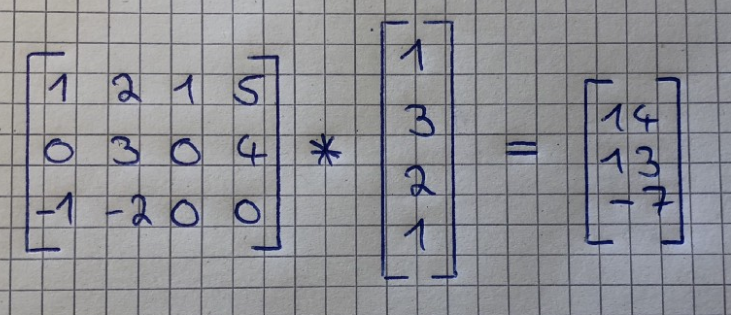 1 2 1 5
0 3 0 4
-1 -2 0 0
*
1
3
2
1
=
14
13
-7